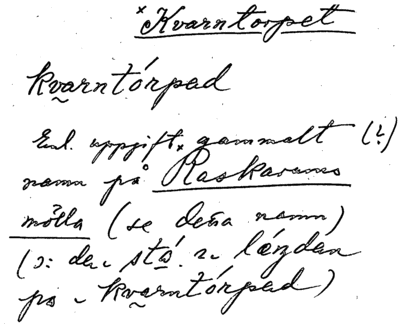 *Kvarntorpet
kvarntórpad
Enl. uppgift, gammalt (?)
namn på Raskarums
mölla (se deña namn)
(ɔ: de stå lándan
på kvarntórpad)